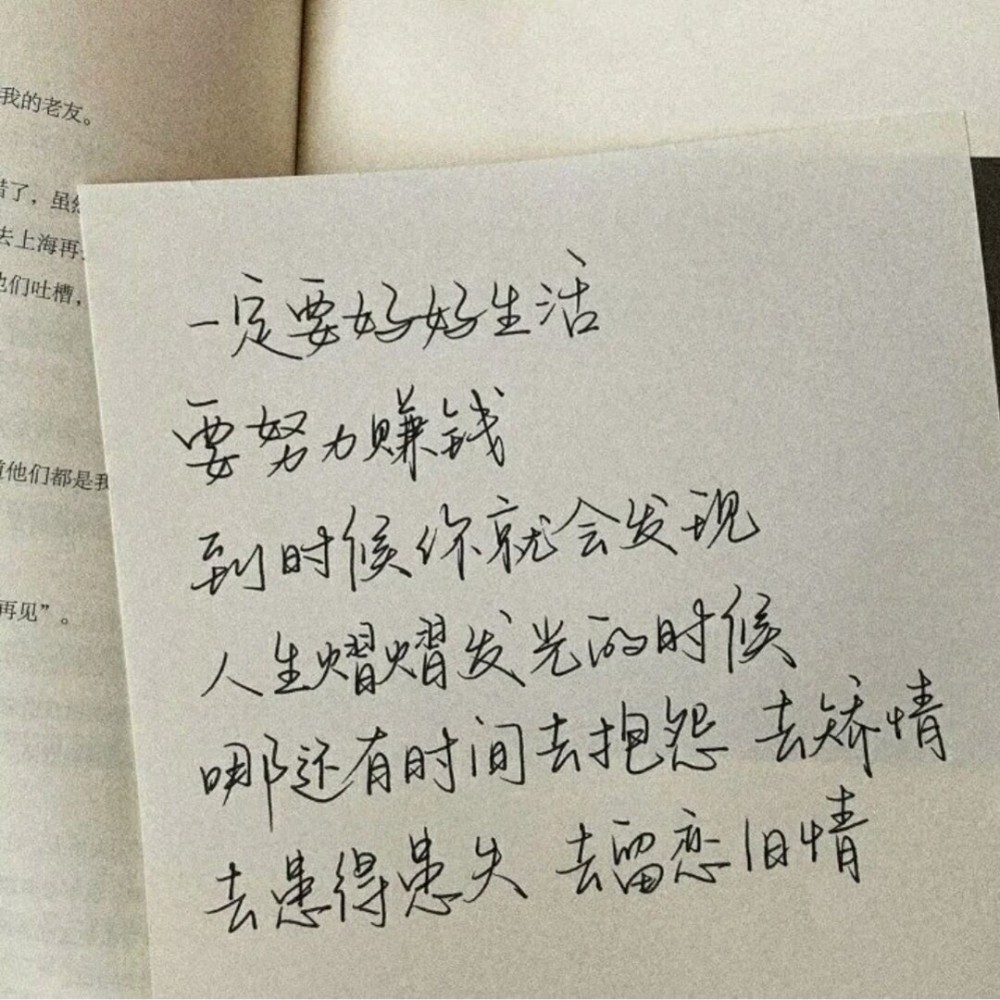 我的老友。
错了，虽然
去上海再
他们吐槽，
道他们都是我
再见”。
一定要好好生活
要努力赚钱
到时候你就会发现
人生熠熠发光的时候
哪还有时间去抱怨 去矫情
去患得患失 去留恋旧情